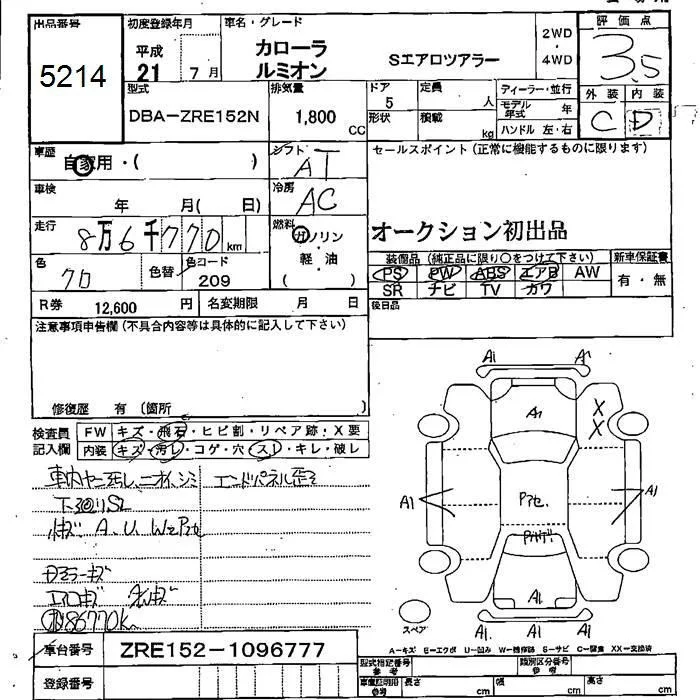 出品番号
5214
初度登録年月
平成
21 7月
車名・グレード
カローラ
ルミオン
Sエアロツアラー
2WD
・
4WD
評価点
3.5
外装 内装
C D
型式
DBA-ZRE152N
排気量
1,800 CC
ドア
5
定員
人
形状
積載
kg
ディーラー・並行
モデル年式 年
ハンドル 左・右
車歴
自家用・( )
シフト
AT
車検
年 月( 日)
冷房
AC
走行
8万6千770km
燃料
ガソリン・
軽・油
( )
色
クロ
色替
色コード
209
R券 12,600 円
名変期限 月 日
セールスポイント(正常に機能するものに限ります)
オークション初出品
装備品(純正品に限り○をつけて下さい)
PS PW ABS エアB AW
SR ナビ TV カワ
新車保証書
有・無
後日品
注意事項申告欄(不具合内容等は具体的に記入して下さい)
修復歴 有(箇所 )
検査員
記入欄
FW キズ・飛石・ヒビ割・リペア跡・X要
内装 キズ・汚レ・コゲ・穴・スレ・キレ・破レ
エンドパネル歪
下廻りSL
A. U. W
86770K
A1
A1
X
X
A1
A1
A1
A1
A1.
A1.
A1
スペア
A-キズ E-エクボ U-凹み W-補修跡 S-サビ C-腐食 XX-交換済
車台番号 ZRE152-1096777
登録番号
型式指定番号
参考
類別区分番号
参考
車庫証明用
参考
長さ cm
幅 cm
高さ cm